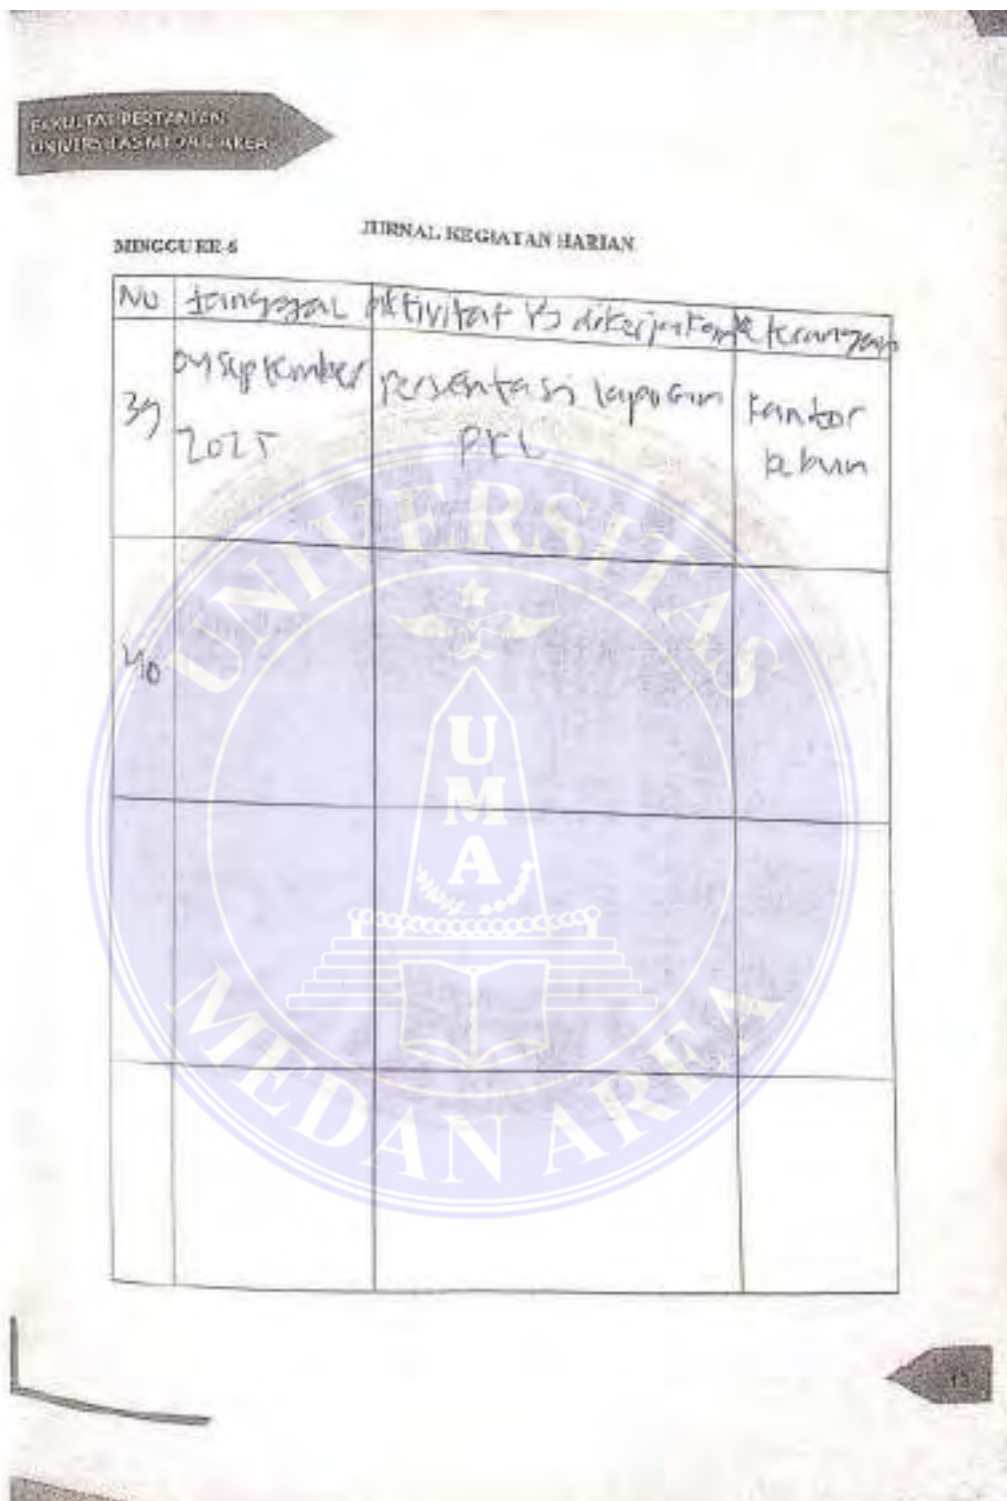 FAKULTAS PERTANIAN
UNIVERSITAS MEDAN AREA
JURNAL KEGIATAN HARIAN
MINGGU KE-6
No tanggal aktivitas yg dikerjakan keterangan
39 04 September 2025 persentasi laporan PKL kantor kebun
40
UNIVERSITAS
UMA
MEDAN AREA
13